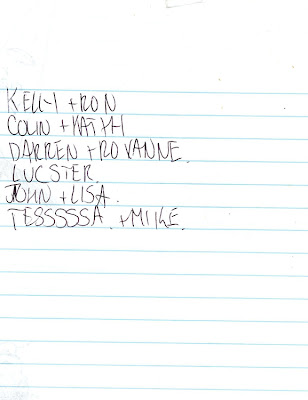 KELLY + RON
COLIN + KATHH
DARREN + ROXANNE.
LUCSTER.
JOHN + LISA.
TESSSSSA. + MIIKE.